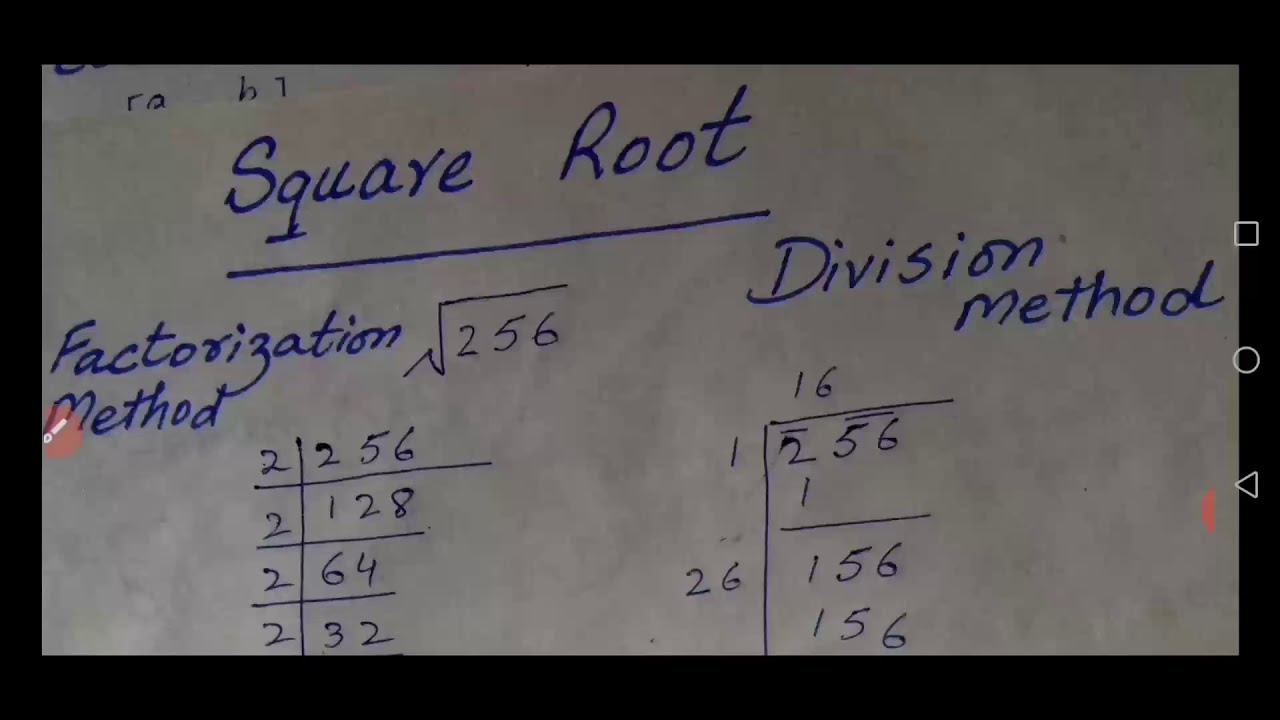 Square Root
Division
Method
Factorization √256
Method
16
2 | 256
1 | 2 56
1
2 | 128
2 | 64
26 | 156
2 | 32
156